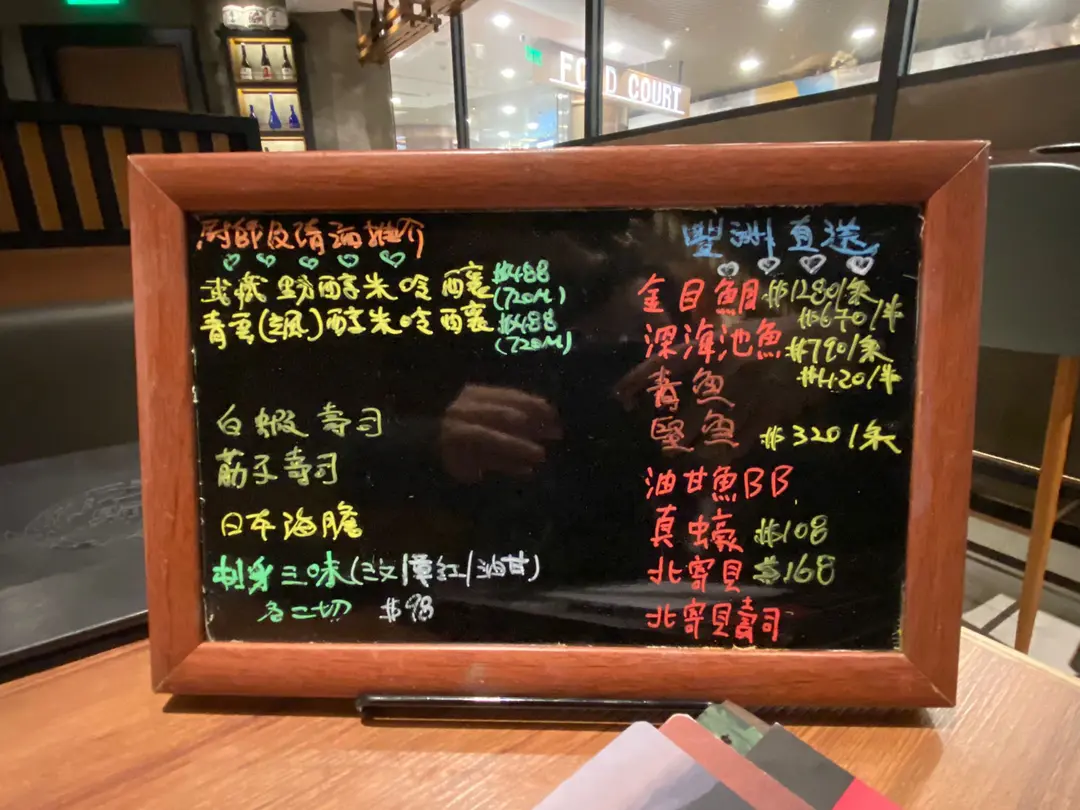 FOOD COURT
厨師及清酒推介
武藏野醇米吟釀 $488
(720M)
青雲(颯)醇米吟釀 $488
(720M)
白蝦壽司
筋子壽司
日本海膽
刺身三味(三文/章紅/油甘)
各二切 $98
豐洲直送
金目鯛 $1280/条
$670/半
深海池魚 $790/条
$420/半
青魚
堅魚 $320/条
油甘魚BB
真蠔 $108
北寄貝 $168
北寄貝壽司